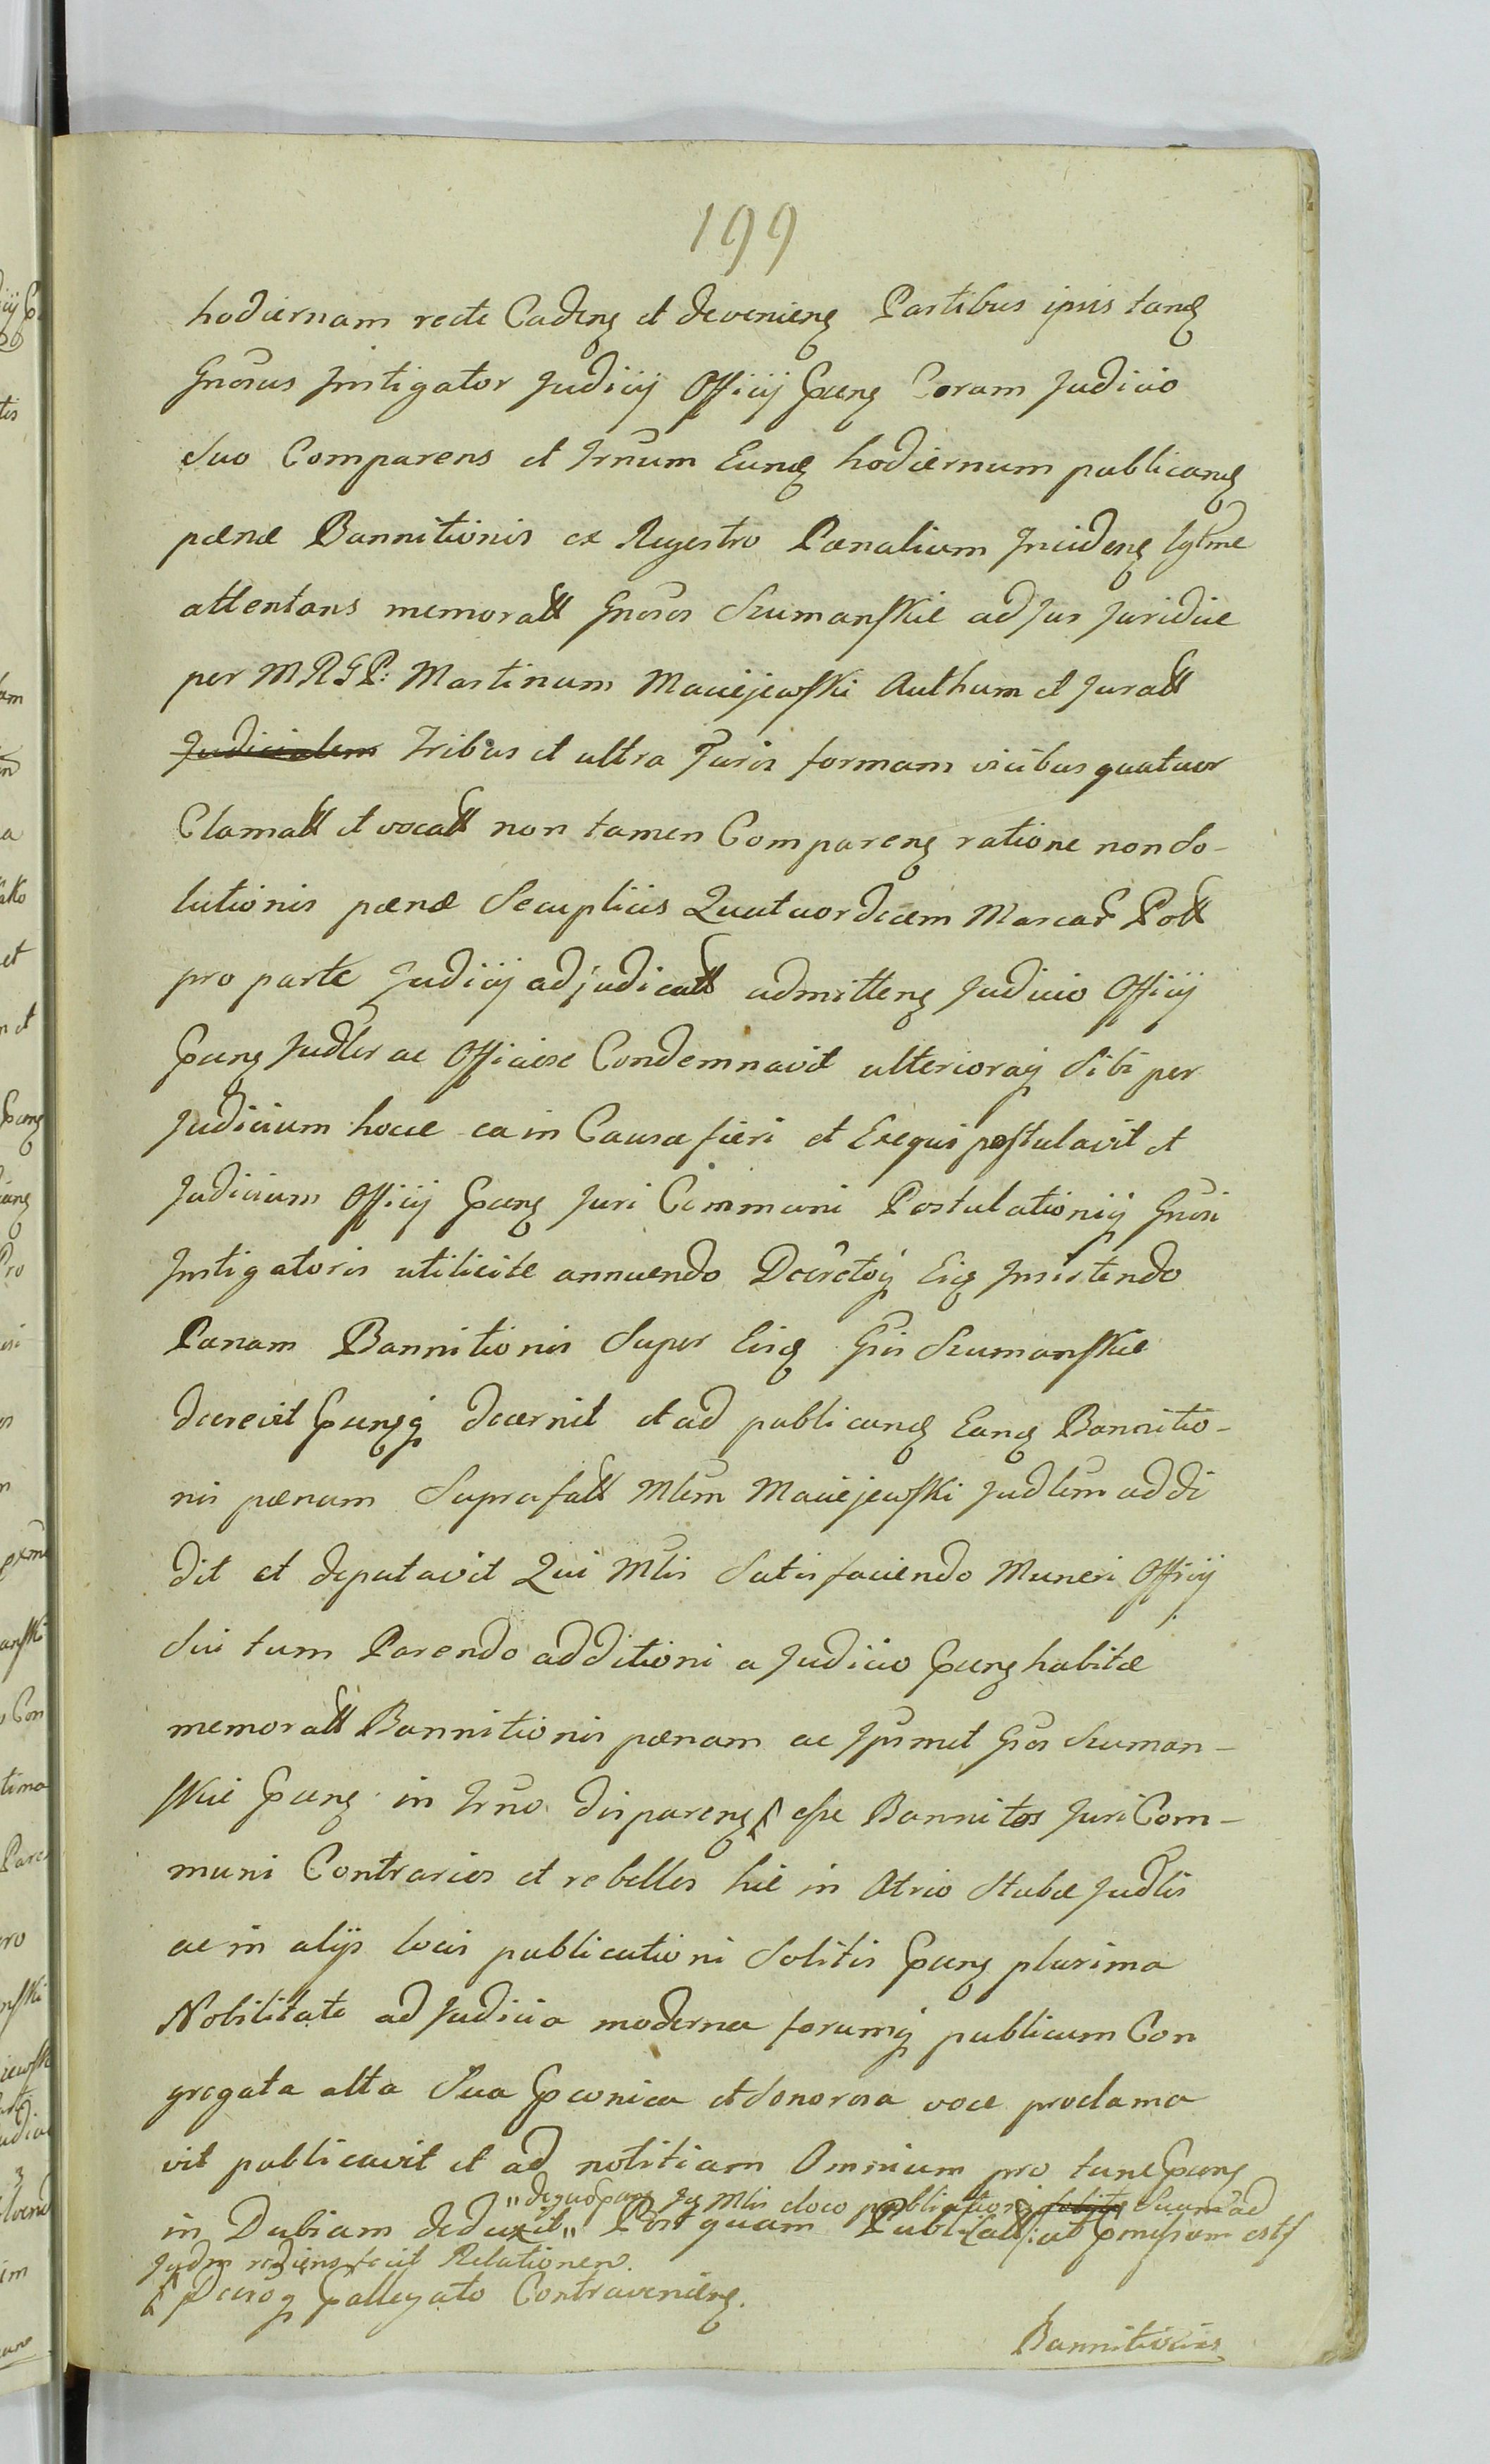 199
hodiernam recte Cadeng et devenieng Partibus ipsis tanq
Gnosus Instigator Judicij Officij Gpeng Coram Judicio
suo Comparens et Trnum Eund hodiernum publicang
pænæ Bannitionis ex Regestro Pænalium Incideng lgtme
attentans memoratt Gnosos Szumanskie ad Jus Juridice
per MRGP: Martinum Maciejewski Authum et Juratt
Judicialem Tribus et ultra Juris formam vicibus quatuor
Clamatt et vocatt non tamen Compareng ratione non so-
lutionis pænæ Sexuplicis Quatuordecem Marcar Poll
pro parte Judicij adjudicatt admitteng Judicio Officij
Gpeng Judler ac Officiose Condemnavit ulterioraq Sibi per
Judicium hocce ea in Causa fieri et Exequi postulavit et
Judicium Officij Gpeng Juri Communi Postulationiq Gnosi
Instigatoris utilicite annuendo Decretoq Eig Insistendo
Pænam Bannitionis Super Eisd Gsis Szumanskie
decrevit Gpengq decernit et ad publicand Eand Bannitio-
nis pænam Suprafatt Mlem Maciejewski Judlem addi
dit et deputavit Qui Mlis Satisfaciendo Muneri Officij
Sui tum Parendo additioni a Judicio Gpeng habitæ
memoratt Bannitionis pænam ac Ipsmet Gsos Szuman-
skie Gpeng in Trno dispareng esse Bannitos Juri Com-
muni Contrarios et rebelles hic in Atrio Stubæ Judlis
ac in alijs locis publicationi Solitis Gpeng plurima
Nobilitate ad Judicia moderna forumq publicum Con
gregata alta Sua Gpconica et Sonorosa voce proclama
vit publicavit et ad notitiam Omnium pro tunc Gpeng
" de quo Gpeng Jg Mlis eloco publicationi solitæ Suam ad
in Dubiam deduxit " Post quam Publicatt: ut Gpmissum est
Judm rediens fecit Relationem.
Decroq Gpallegato Contravenieng.
Bannitionis